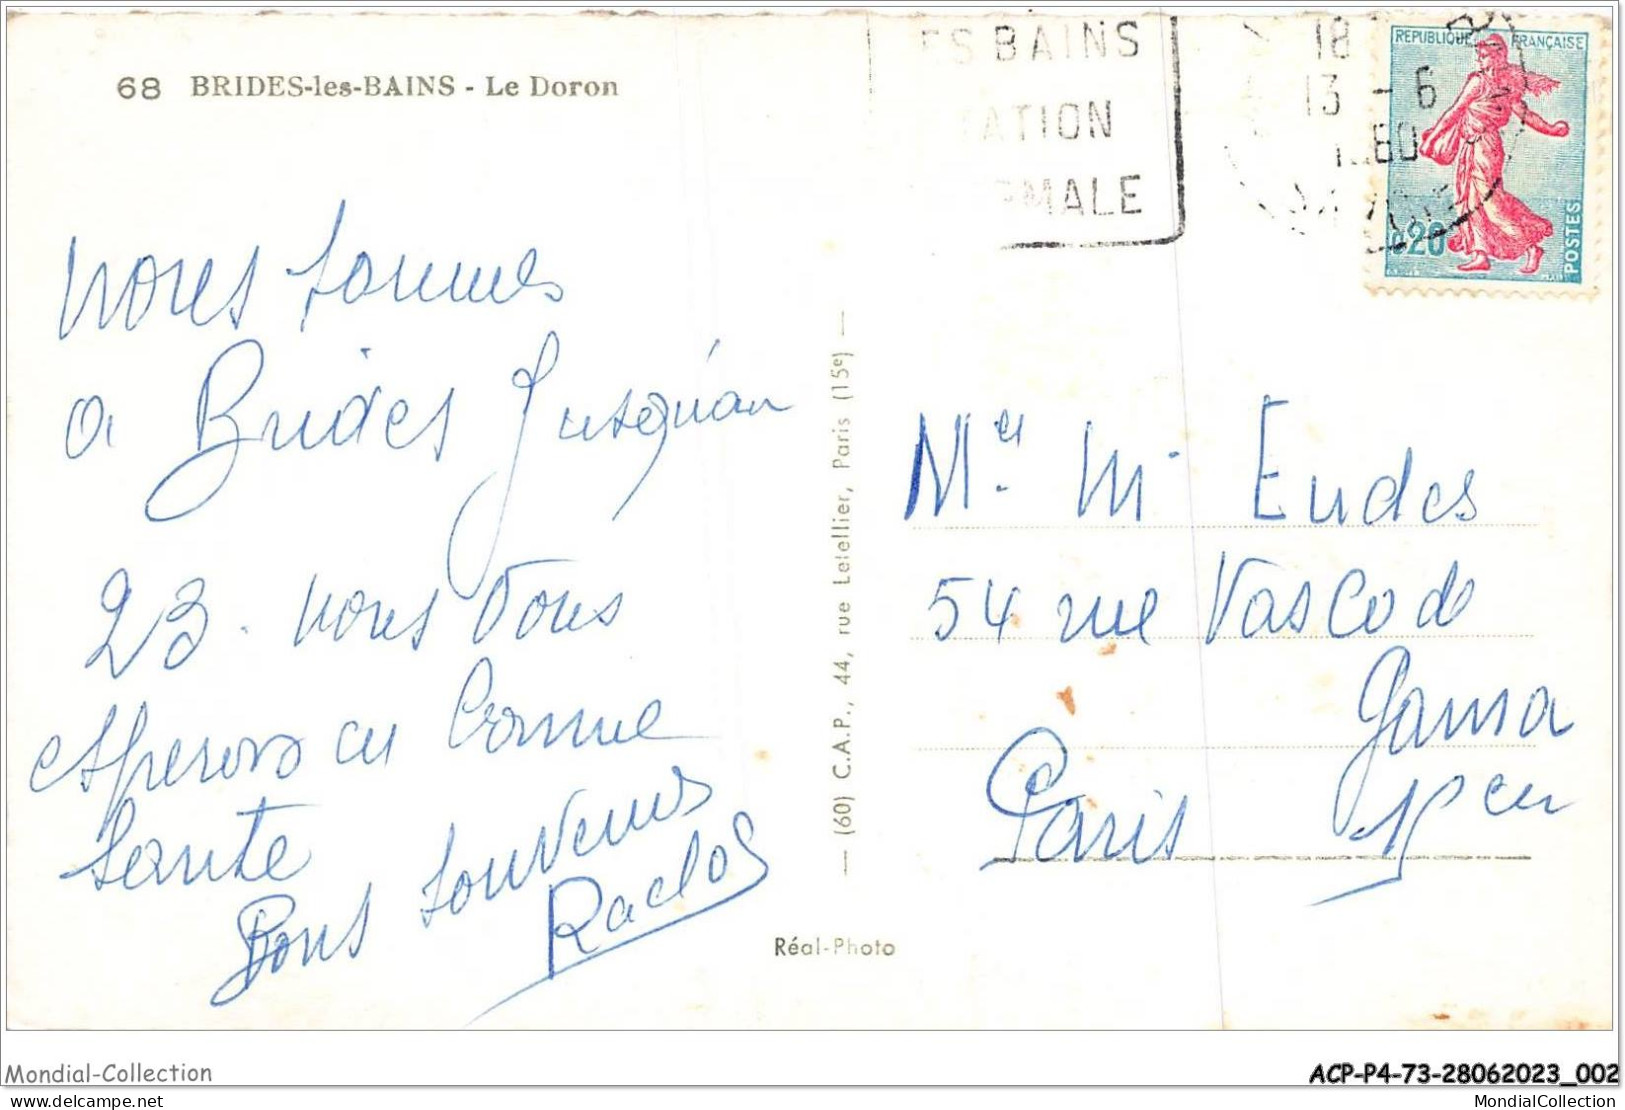 68 BRIDES-les-BAINS - Le Doron
ES BAINS
ATION
RMALE
18
13 - 6
1960
REPUBLIQUE FRANÇAISE
0,20
POSTES
nous sommes
a Brides jusqu'au
23. nous vous
esperons en bonne
sante
Bons souvenirs
(60) C.A.P., 44, rue Letellier, Paris (15e)
Réal-Photo
Mr Eudes
54 rue Vasco de
Gama
Paris
Mondial-Collection
ACP-P4-73-28062023_002
www.delcampe.net
MondialCollection